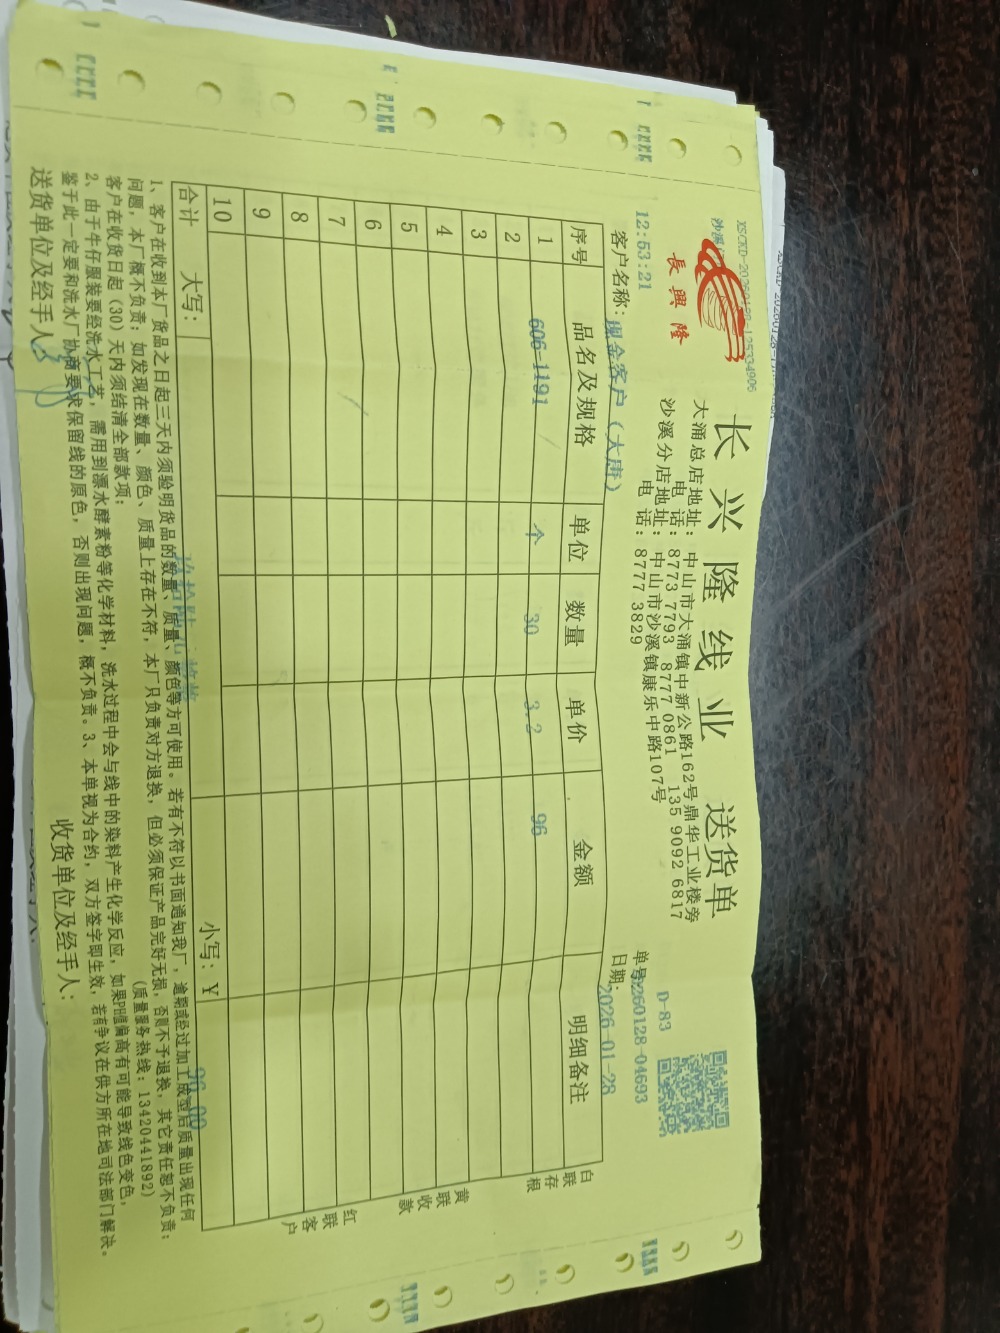 XSCKD-20260128-125334906
長興隆
长兴隆线业 送货单
大涌总店地址：中山市大涌镇中新公路162号鼎华工业楼旁
电 话：8773 7793 8777 0861 135 9092 6817
沙溪分店地址：中山市沙溪镇康乐中路107号
电 话：8777 3829
D-83
单号:
260128-04693
12:53:21
日期：2026-01-28
客户名称：现金客户（大唐）
序号 品名及规格 单位 数量 单价 金额 明细备注
1 606-1191 个 30 3.2 96
2
3
4
5
6
7
8
9
10
合计 大写： 小写：￥ 96.00
白联存根
黄联收款
红联客户
1、客户在收到本厂货品之日起三天内须验明货品的数量、质量、颜色等方可使用。若有不符以书面通知我厂，逾期或经过加工成型后质量出现任何
问题，本厂概不负责；如发现在数量、颜色、质量上存在不符，本厂只负责对方退换，但必须保证产品完好无损，否则不予退换，其它责任恕不负责；
客户在收货日起（30）天内须结清全部款项； （质量服务热线：13420441892）
2、由于牛仔服装要经洗水工艺，需用到漂水酵素粉等化学材料，洗水过程中会与线中的染料产生化学反应，如果PH值偏高有可能导致线色变色，
鉴于此一定要和洗水厂协商要求保留线的原色，否则出现问题，概不负责。3、本单视为合约，双方签字即生效，若有争议在供方所在地司法部门解决。
送货单位及经手人： 收货单位及经手人：